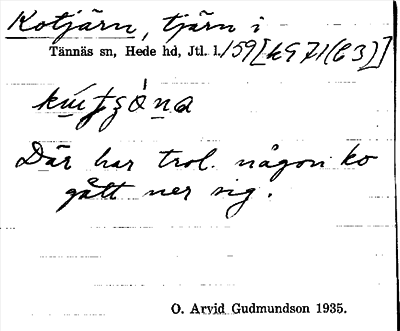 Kotjärn, tjärn i
Tännäs sn, Hede hd, Jtl. l./59[k971(C3)]
Där har trol. någon ko
gått ner sig.
O. Arvid Gudmundson 1935.